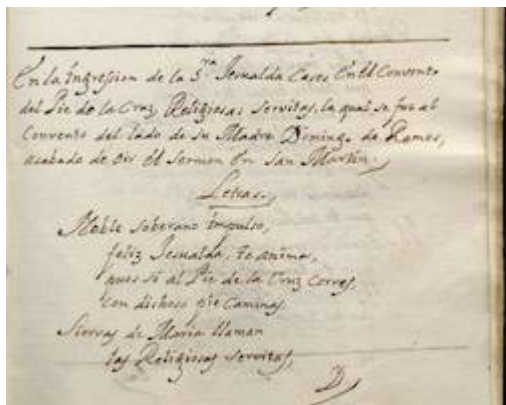 En la Ingression de la S.ra Jesualda Cases En el Convento
del Pie de la Cruz, Religiosas Servitas, la qual se fue al
Convento del lado de su Madre Doming.a de Ramos,
acabado de oir el Sermon En San Martin.
Letras.
Noble soberano impulso,
feliz Jesualda, te anima,
pues si al Pie de la Cruz corres,
con dichoso pie caminas.
Siervas de Maria llaman
las Religiosas Servitas,